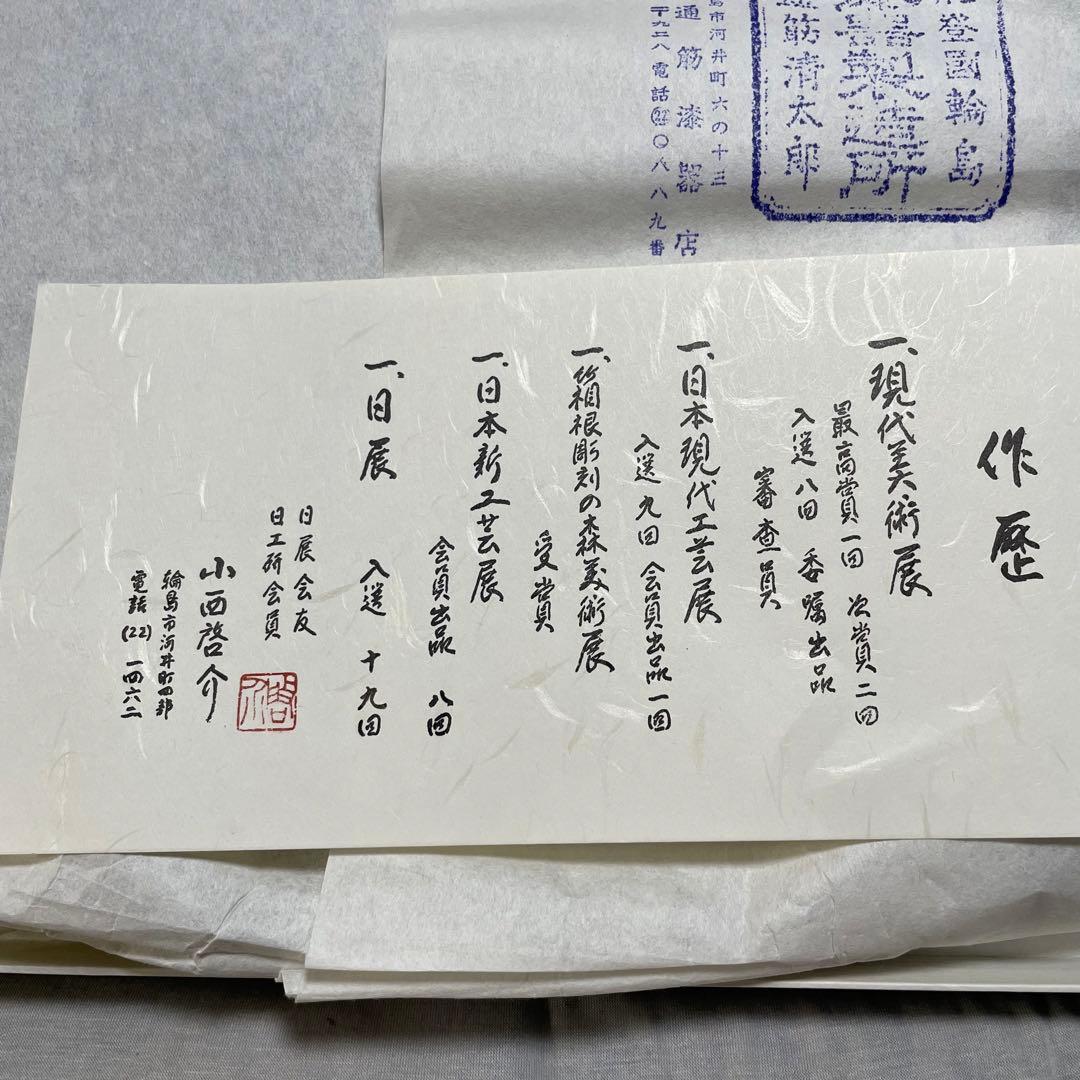 登國輪島
製造所
筋清太郎
通筋漆器店
島市河井町六の十三
〒九二八電話(22)〇八八九番
作歴
一、現代美術展
最高賞一回 次賞二回
入選八回 委嘱出品
審査員
一、日本現代工芸展
入選九回 会員出品一回
一、箱根彫刻の森美術展
受賞
一、日本新工芸展
会員出品 八回
一、日展 入選 十九回
日展会友
日工所会員
小西啓介
輪島市河井町四部
電話(22)一四六二